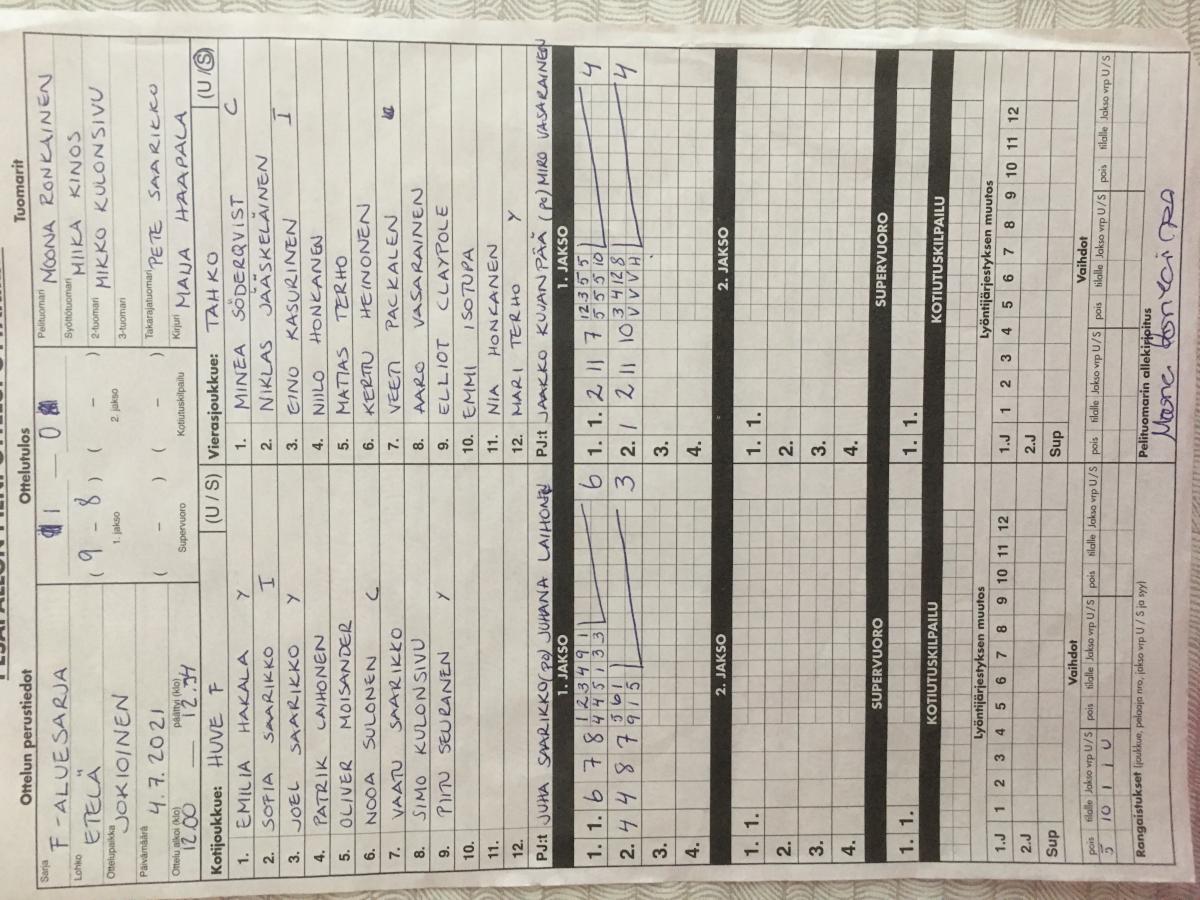 Ottelun perustiedot
Ottelutulos
Tuomarit
Sarja F-ALUESARJA
Lohko ETELÄ
Ottelupaikka JOKIOINEN
Päivämäärä 4.7.2021
Ottelu alkoi (klo) päättyi (klo)
12.00 — 12.34
1 — 0
( 9 - 8 ) ( - )
1. jakso 2. jakso
( - ) ( - )
Supervuoro Kotiutuskilpailu
Pelituomari NOONA RONKAINEN
Syöttötuomari MIIKA KINOS
2-tuomari MIKKO KULONSIVU
3-tuomari
Takarajatuomari PETE SAARIKKO
Kirjuri MAIJA HAAPALA
Kotijoukkue: HUVE F (U / S)
1. EMILIA HAKALA Y
2. SOFIA SAARIKKO I
3. JOEL SAARIKKO Y
4. PATRIK LAIHONEN
5. OLIVER MOISANDER
6. NOOA SULONEN C
7. VAATU SAARIKKO
8. SIMO KULONSIVU
9. PIITU SEURANEN Y
10.
11.
12.
PJ:t JUHA SAARIKKO (po) JUHANA LAIHONEN
Vierasjoukkue: TAHKO (U / S)
1. MINEA SÖDERQVIST C
2. NIKLAS JÄÄSKELÄINEN
3. EINO KASURINEN I
4. NIILO HONKANEN
5. MATIAS TERHO
6. KERTU HEINONEN
7. VEETI PACKALEN
8. AARO VASARAINEN
9. ELLIOT CLAYPOLE
10. EMMI ISOTUPA
11. NIA HONKANEN
12. MARI TERHO Y
PJ:t JAAKKO KUVANPÄÄ (po) MIRO VASARAINEN
1. JAKSO
1. 1. 6 7 8 1 2 3 4 9 1 6
4 4 5 1 3 3
2. 4 4 8 7 5 6 1 3
9 1 5
3.
4.
2. JAKSO
1. 1.
2.
3.
4.
SUPERVUORO
1. 1.
KOTIUTUSKILPAILU
1. JAKSO
1. 1. 2 11 7 12 3 5 5 4
5 5 5 10
2. 1 2 11 10 3 4 12 8 4
V V V H
3.
4.
2. JAKSO
1. 1.
2.
3.
4.
SUPERVUORO
1. 1.
KOTIUTUSKILPAILU
Lyöntijärjestyksen muutos
1.J 1 2 3 4 5 6 7 8 9 10 11 12
2.J
Sup
Vaihdot
pois tilalle Jakso vrp U / S pois tilalle Jakso vrp U / S pois tilalle Jakso vrp U / S
5 10 1 1 U
Rangaistukset (joukkue, pelaaja nro, jakso vrp U / S ja syy)
Lyöntijärjestyksen muutos
1.J 1 2 3 4 5 6 7 8 9 10 11 12
2.J
Sup
Vaihdot
pois tilalle Jakso vrp U / S pois tilalle Jakso vrp U / S pois tilalle Jakso vrp U / S
Pelituomarin allekirjoitus